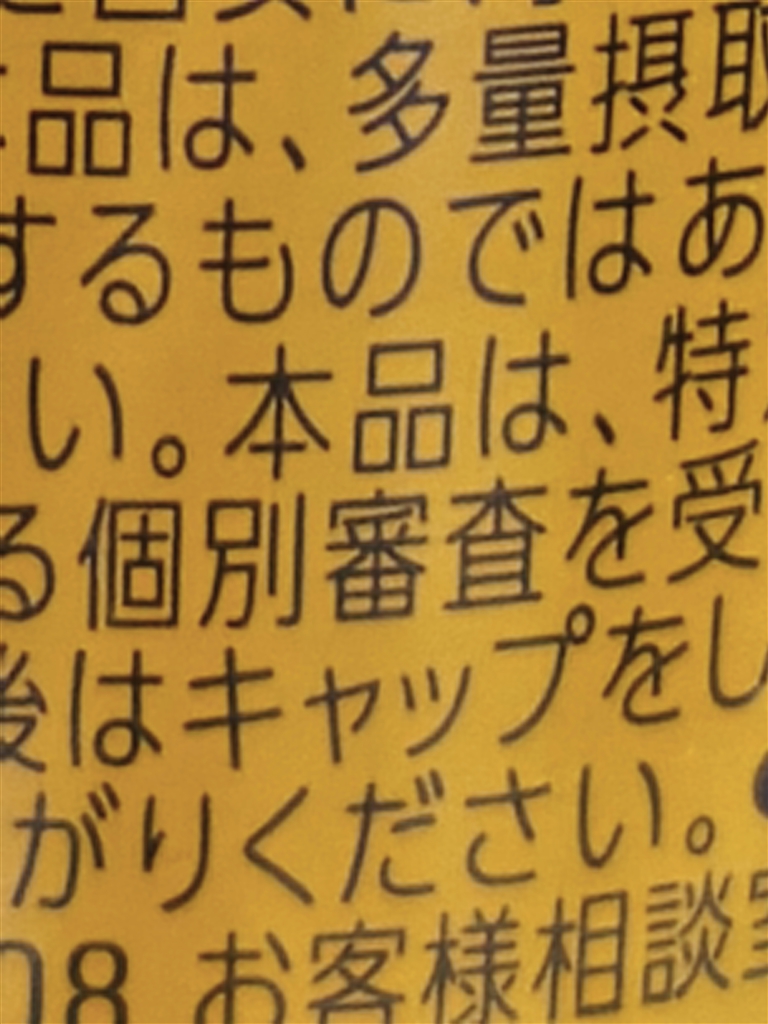 品は、多量摂取
するものではあ
い。本品は、特
る個別審査を受
後はキャップをし
がりください。
08 お客様相談室